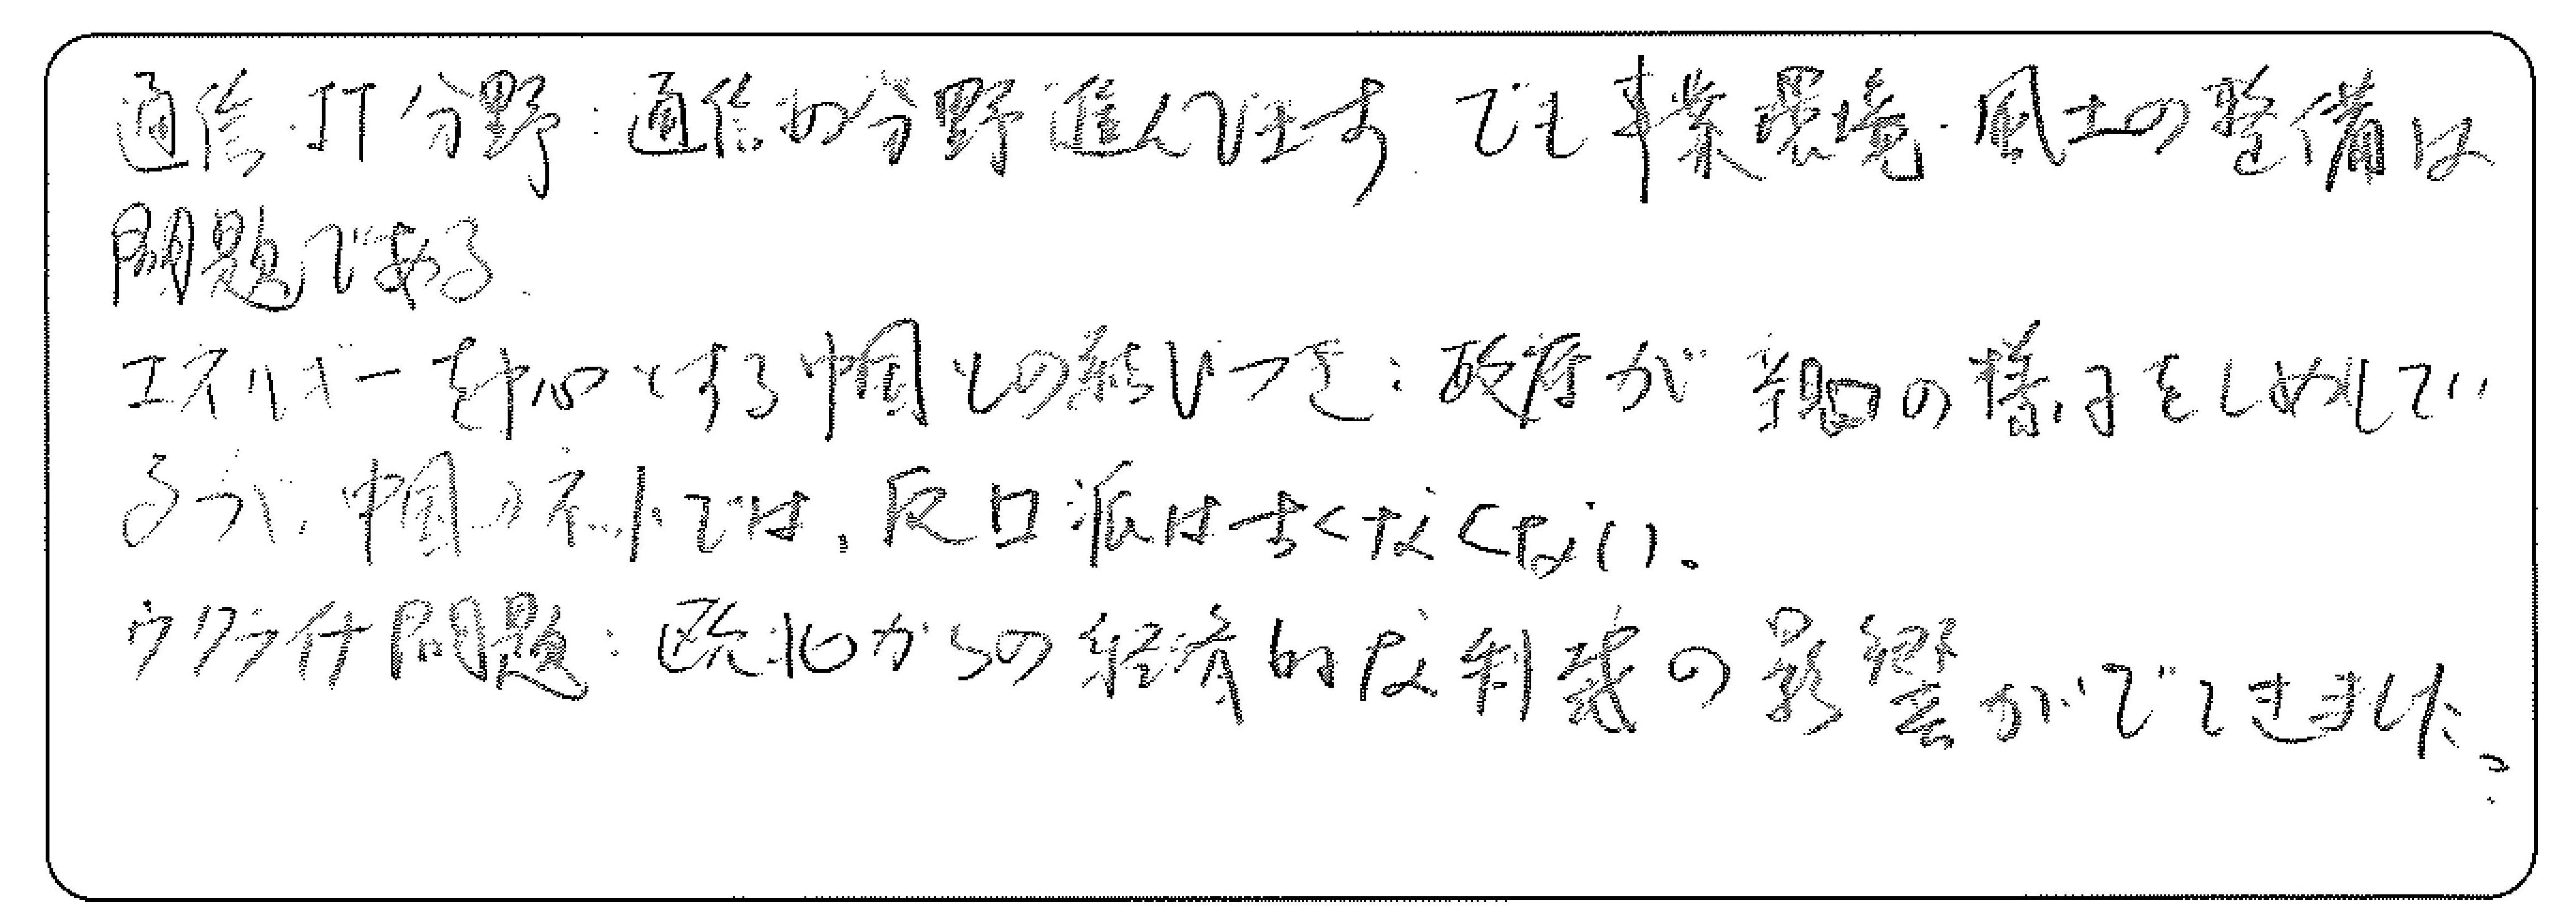 通信・IT分野：通信の分野進んでます。でも事業環境・風土の整備は
問題である.
エネルギーを中心とする中国との結びつき：政府が親日の様子をしめして い
るが、中国のネットでは、反日派は少くなくない。
ウクライナ問題：欧米からの経済的な制裁の影響がでてきました。